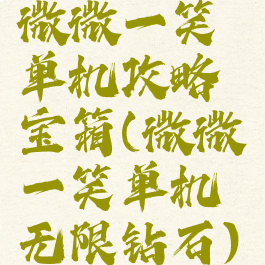 微微一笑
单机攻略
宝箱(微微
一笑单机
无限钻石)